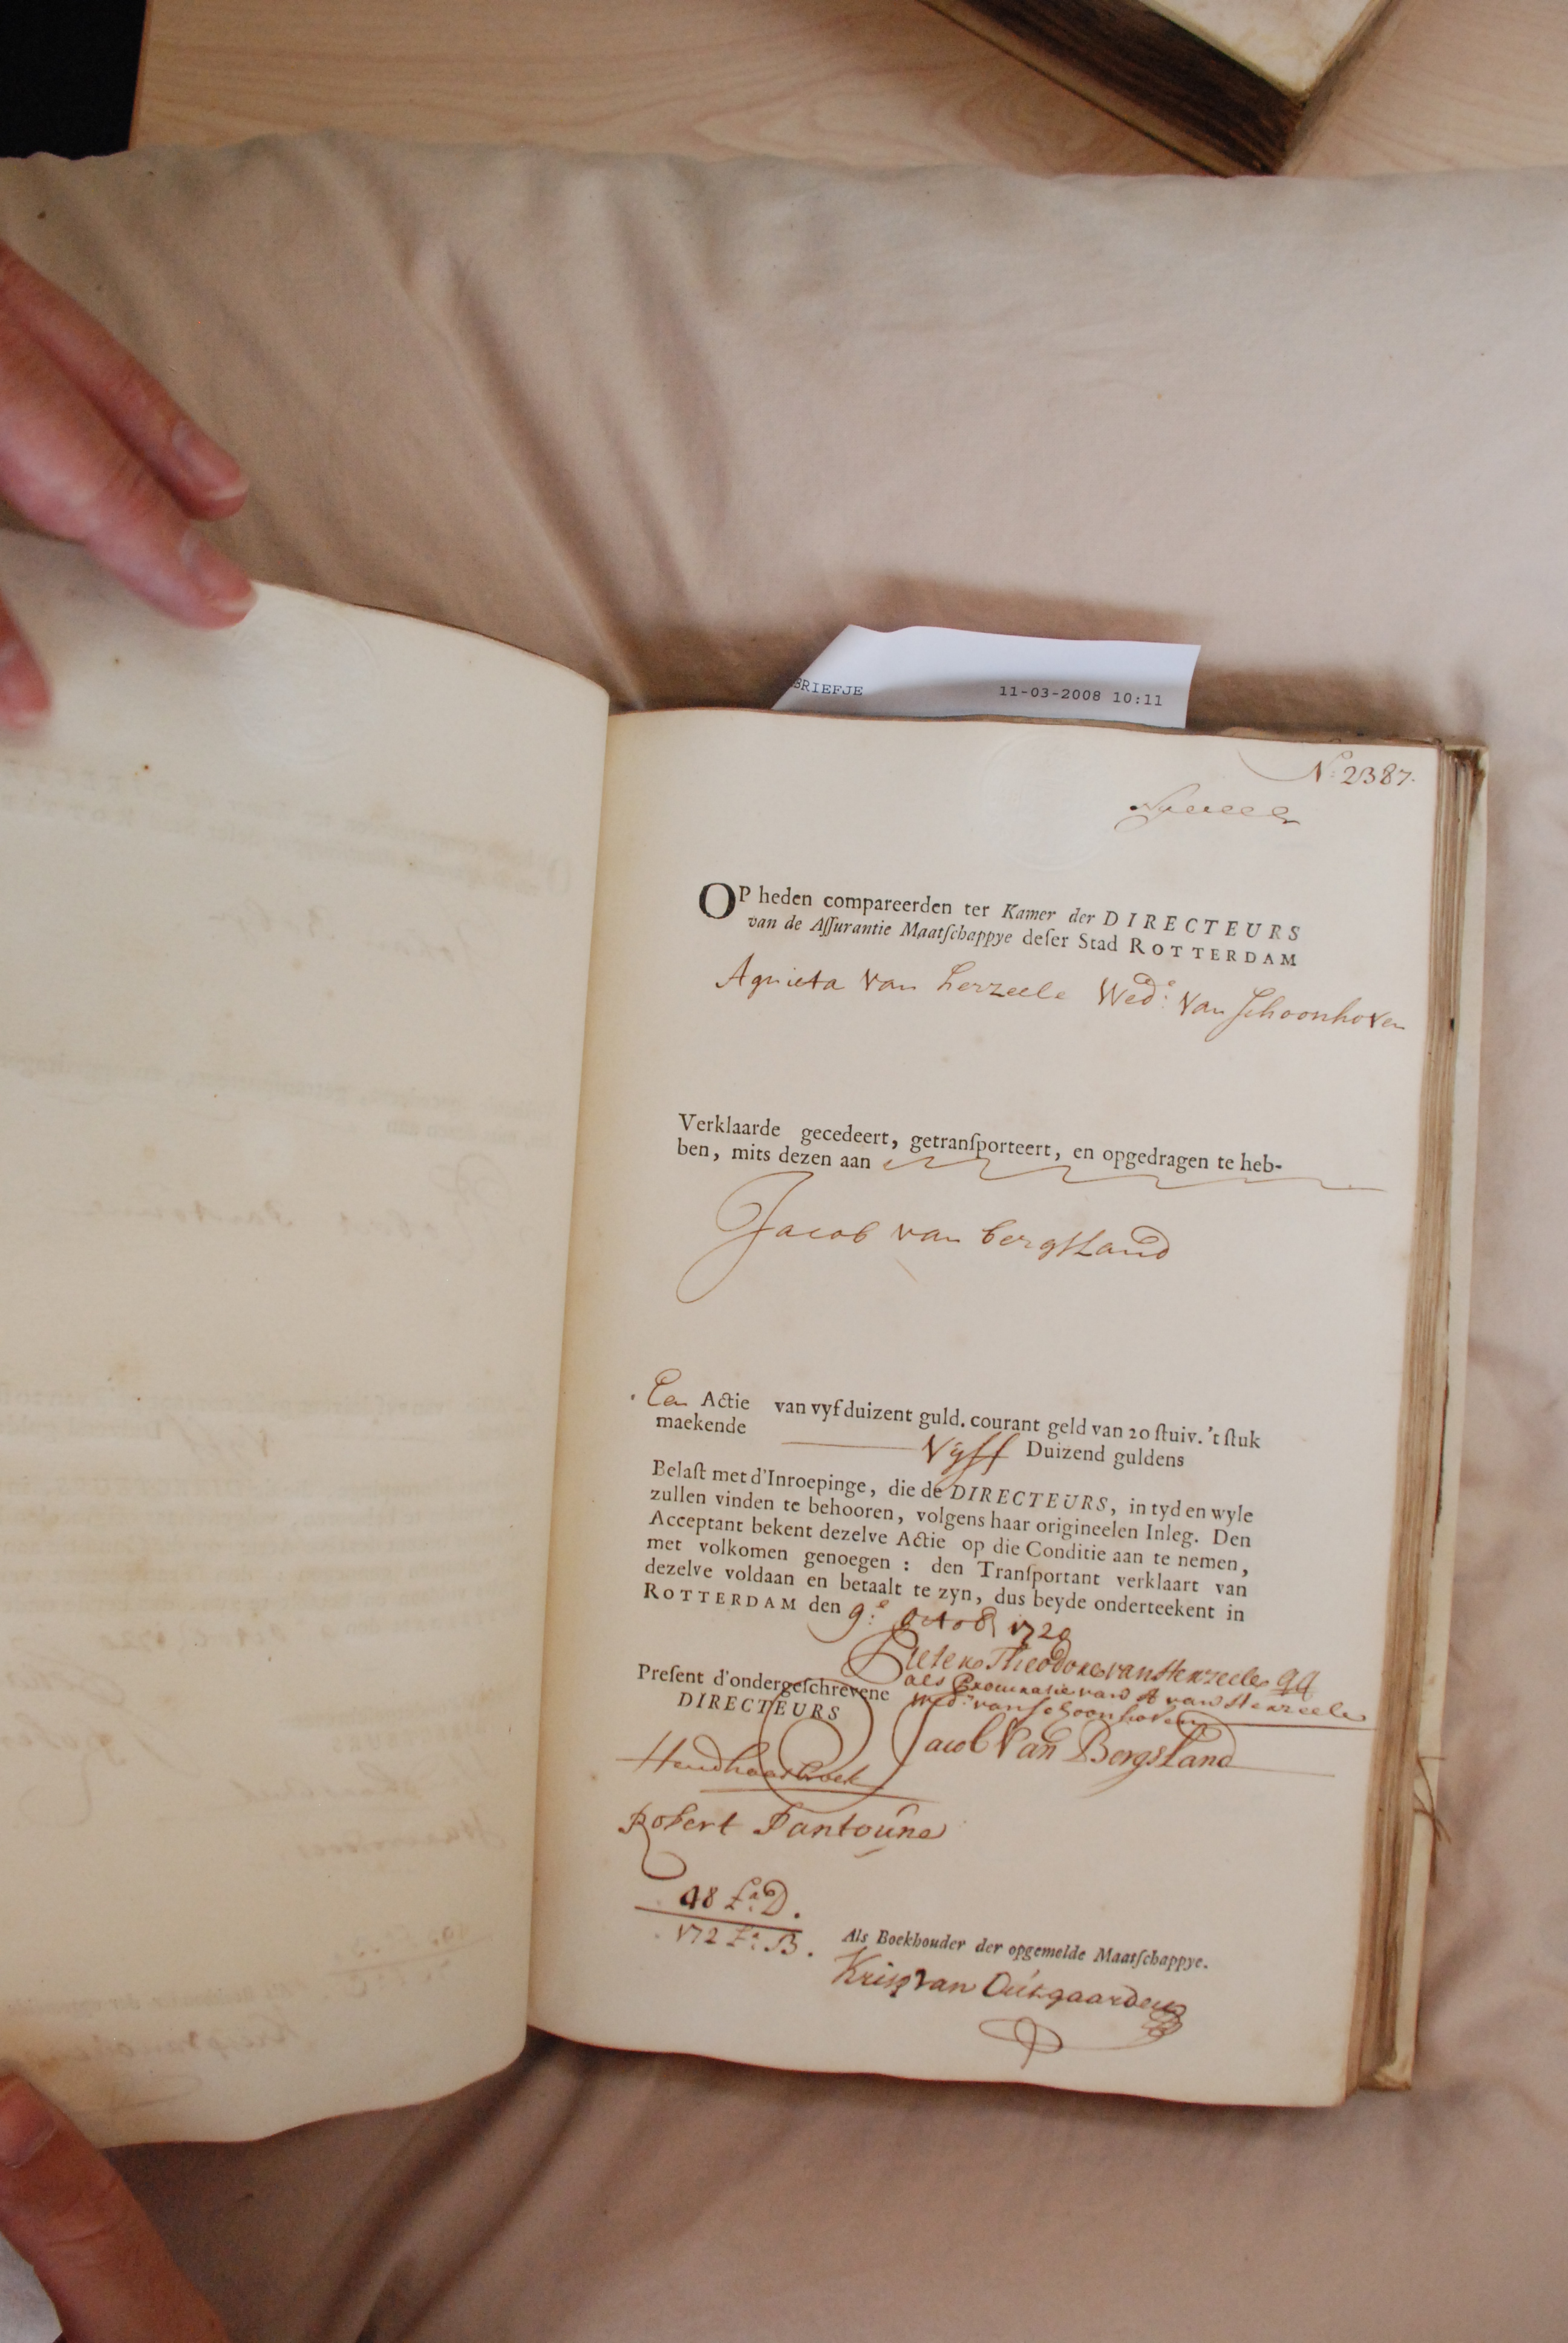 BRIEFJE 11-03-2008 10:11
No: 2387.
OP heden compareerden ter Kamer der DIRECTEURS
van de Aſſurantie Maatſchappye deſer Stad ROTTERDAM
Agnieta van herzeele Wede: Van Schoonhoven
Verklaarde gecedeert, getranſporteert, en opgedragen te heb-
ben, mits dezen aan
Jacob van bergsLand
Een Actie van vyfduizent guld. courant geld van 20 ſtuiv. 't ſtuk
maekende Vyff Duizend guldens
Belaſt met d'Inroepinge, die de DIRECTEURS, in tyd en wyle
zullen vinden te behooren, volgens haar origineelen Inleg. Den
Acceptant bekent dezelve Actie op die Conditie aan te nemen,
met volkomen genoegen : den Tranſportant verklaart van
dezelve voldaan en betaalt te zyn, dus beyde onderteekent in
ROTTERDAM den 9e: octob 1720
Pieter Theodore van Herzeele qq
als Procuratie van A van Herzeele
Wed: van Schoonhoven
Preſent d'ondergeſchrevene
DIRECTEURS
Jacob Van BergsLand
Robert Fantoúne
48 La: D.
172 La: B.
Als Boekhouder der opgemelde Maatſchappye.
Krisp van Oútgaarden